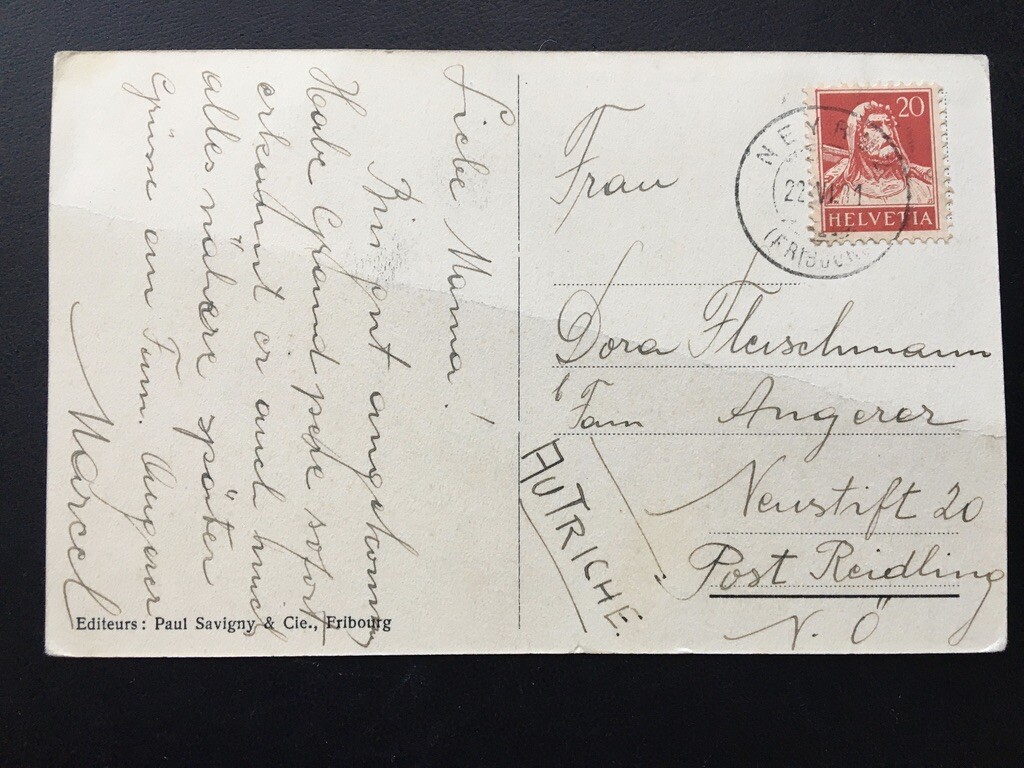 Liebe Mama!
Brignt angekommen
Habe Grand père sofort
erkannt er auch
alles nähere später
Grüsse an Fam. Angerer
Marcel
Editeurs: Paul Savigny & Cie., Fribourg
20
HELVETIA
22.VI.
(FRIBOURG)
Frau
Dora Fleischmann
b Fam Angerer
Neustift 20
Post Reidling
N.Ö
AUTRICHE.